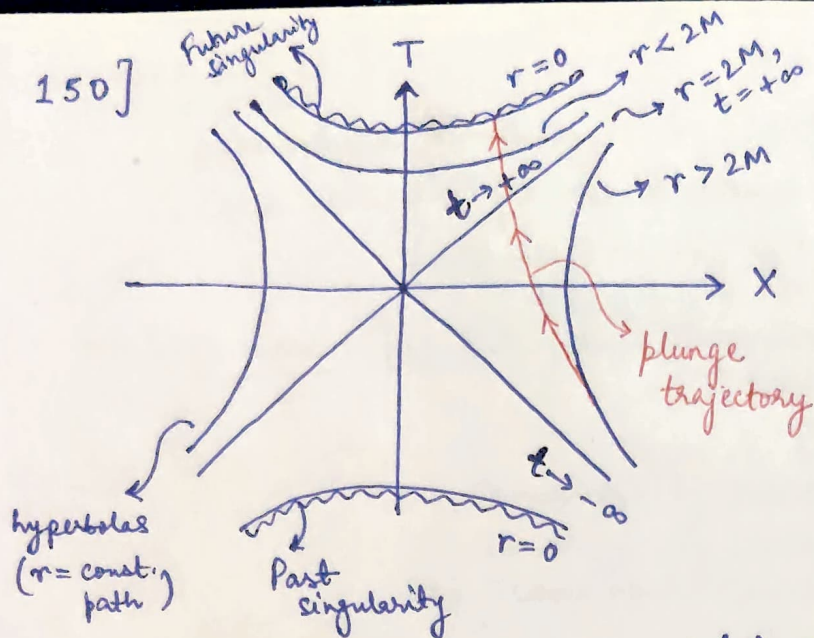 150]
Future
singularity
T
r=0
r<2M
r=2M,
t=+∞
t→+∞
r>2M
X
plunge
trajectory
t→-∞
hyperbolas
(r=const.
path)
Past
singularity
r=0